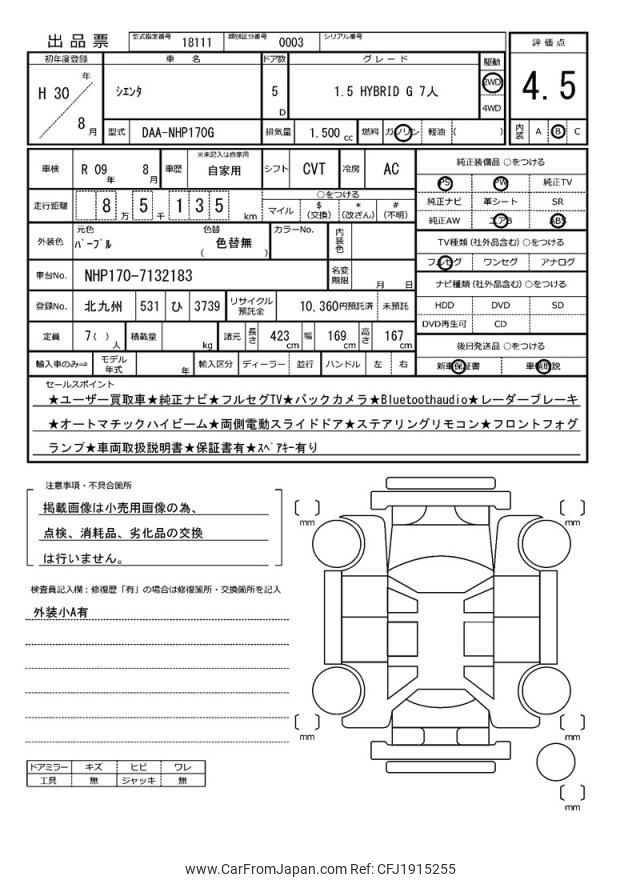 出品票 型式指定番号 18111 類別区分番号 0003 シリアル番号
初年度登録 車名 ドア数 グレード 駆動 評価点
H 30 年 8 月 シエンタ 5 D 1.5 HYBRID G 7人 2WD 4WD 4.5
型式 DAA-NHP170G 排気量 1,500 cc 燃料 ガソリン 軽油 ( ) 内装 A B C
車検 R 09 年 8 月 車歴 ※未記入は自家用 自家用 シフト CVT 冷房 AC 純正装備品 ○をつける
PS PW 純正TV
走行距離 8 万 5 千 1 3 5 km ○をつける マイル $ (交換) * (改ざん) # (不明) 純正ナビ 革シート SR
純正AW エアB ABS
外装色 元色 パープル 色替 ( 色替無 ) カラーNo. 内装色 TV種類 (社外品含む) ○をつける
フルセグ ワンセグ アナログ
車台No. NHP170-7132183 名変期限 月 日 ナビ種類 (社外品含む) ○をつける
登録No. 北九州 531 ひ 3739 リサイクル預託金 10,360円預託済 未預託 HDD DVD SD
DVD再生可 CD
定員 7( ) 人 積載量 kg 諸元 長さ 423 cm 幅 169 cm 高さ 167 cm 後日発送品 ○をつける
輸入車のみ⇒ モデル年式 年 輸入区分 ディーラー 並行 ハンドル 左 右 新車保証書 車輌取説
セールスポイント
★ユーザー買取車★純正ナビ★フルセグTV★バックカメラ★Bluetoothaudio★レーダーブレーキ
★オートマチックハイビーム★両側電動スライドドア★ステアリングリモコン★フロントフォグ
ランプ★車両取扱説明書★保証書有★スペアキー有り
注意事項・不具合箇所
掲載画像は小売用画像の為、
点検、消耗品、劣化品の交換
は行いません。
検査員記入欄:修復歴「有」の場合は修復箇所・交換箇所を記入
外装小A有
mm mm
mm mm
mm
ドアミラー キズ ヒビ ワレ
工具 無 ジャッキ 無
www.CarFromJapan.com Ref: CFJ1915255